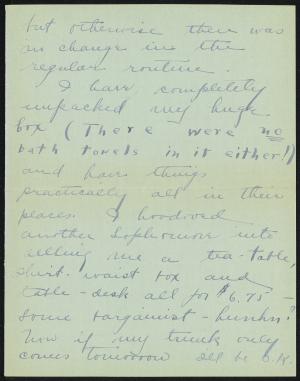 but otherwise there was
no change in the
regular routine.
I have completely
unpacked my huge
box (There were no
bath towels in it either!)
and have things
practically all in their
places. I hoodooed
another Sophomore into
selling me a tea-table,
shirt-waist box and
table-desk all for $6.75 –
some bargainist – hunhn?
Now if my trunk only
comes tomorrow I'll be O.K.